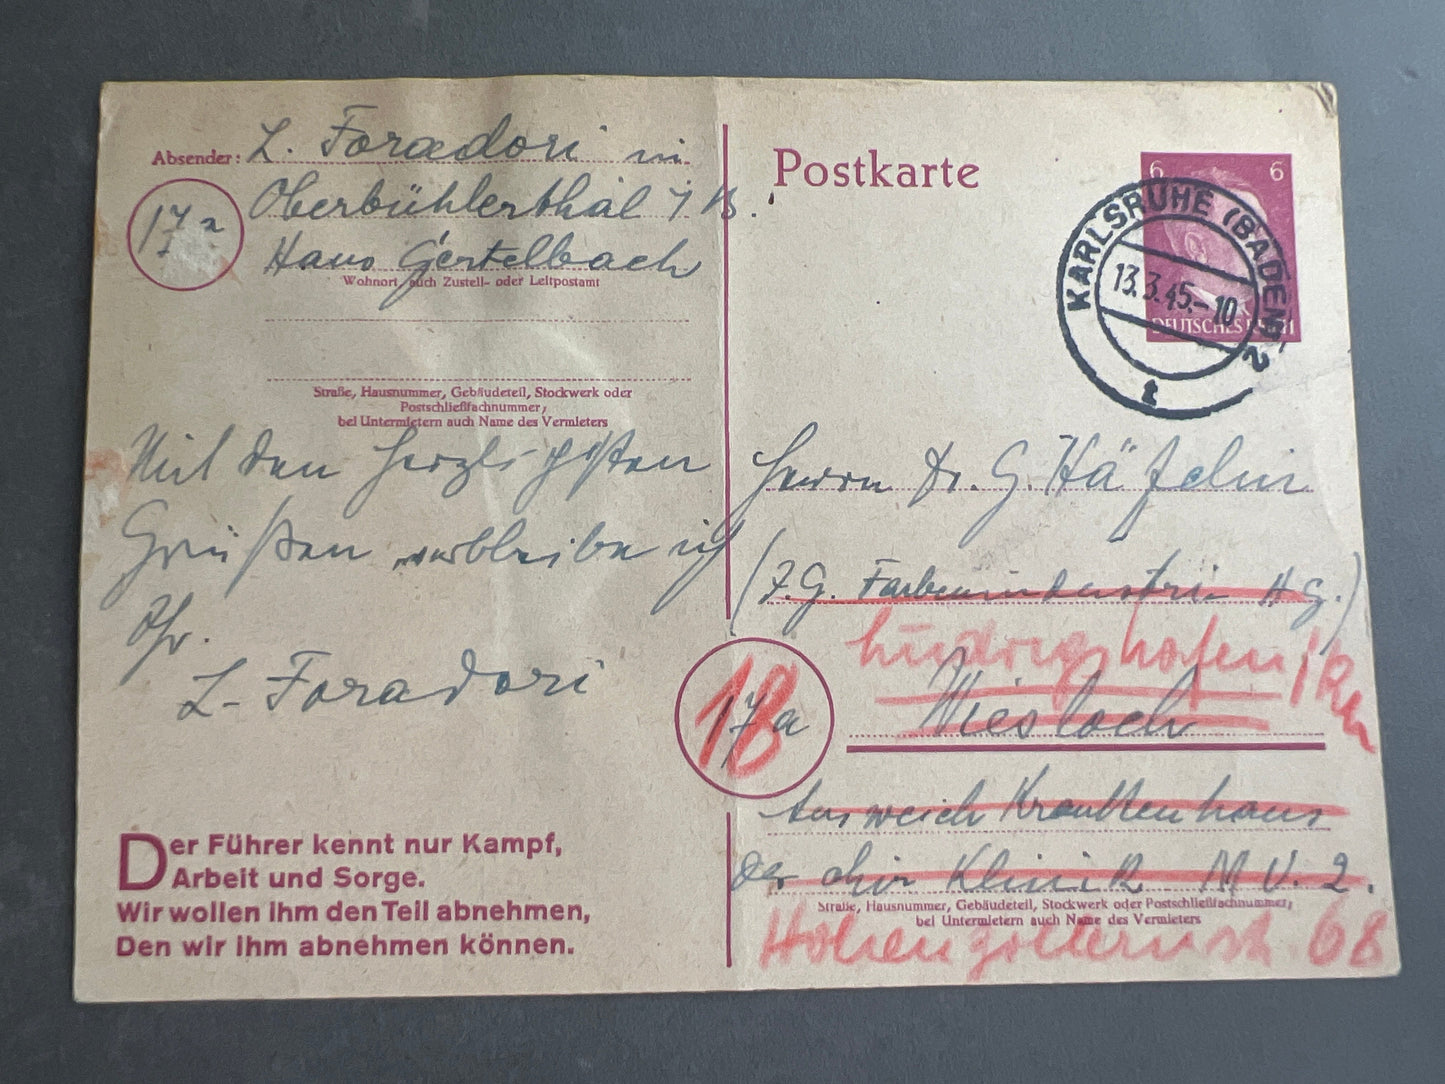 Absender: L. Foradori in
17a
Oberbühlerthal i B.
Haus Gertelbach
Wohnort, auch Zustell- oder Leitpostamt
Straße, Hausnummer, Gebäudeteil, Stockwerk oder
Postschließfachnummer;
bei Untermietern auch Name des Vermieters
Mit den herzlichsten
Grüßen verbleibe ich
Ihr.
L. Foradori
Der Führer kennt nur Kampf,
Arbeit und Sorge.
Wir wollen ihm den Teil abnehmen,
Den wir ihm abnehmen können.
Postkarte
6 6
DEUTSCHES REICH
KARLSRUHE (BADEN) 2
13.3.45.-10
Herrn Dr. G. Häfelin
(I.G. Farbenindustrie A G.)
Ludwigshafen / Rh
18
17a
Wiesloch
Ausweich Krankenhaus
der chir Klinik M V. 2.
Straße, Hausnummer, Gebäudeteil, Stockwerk oder Postschließfachnummer;
bei Untermietern auch Name des Vermieters
Hohenzollernstr. 68